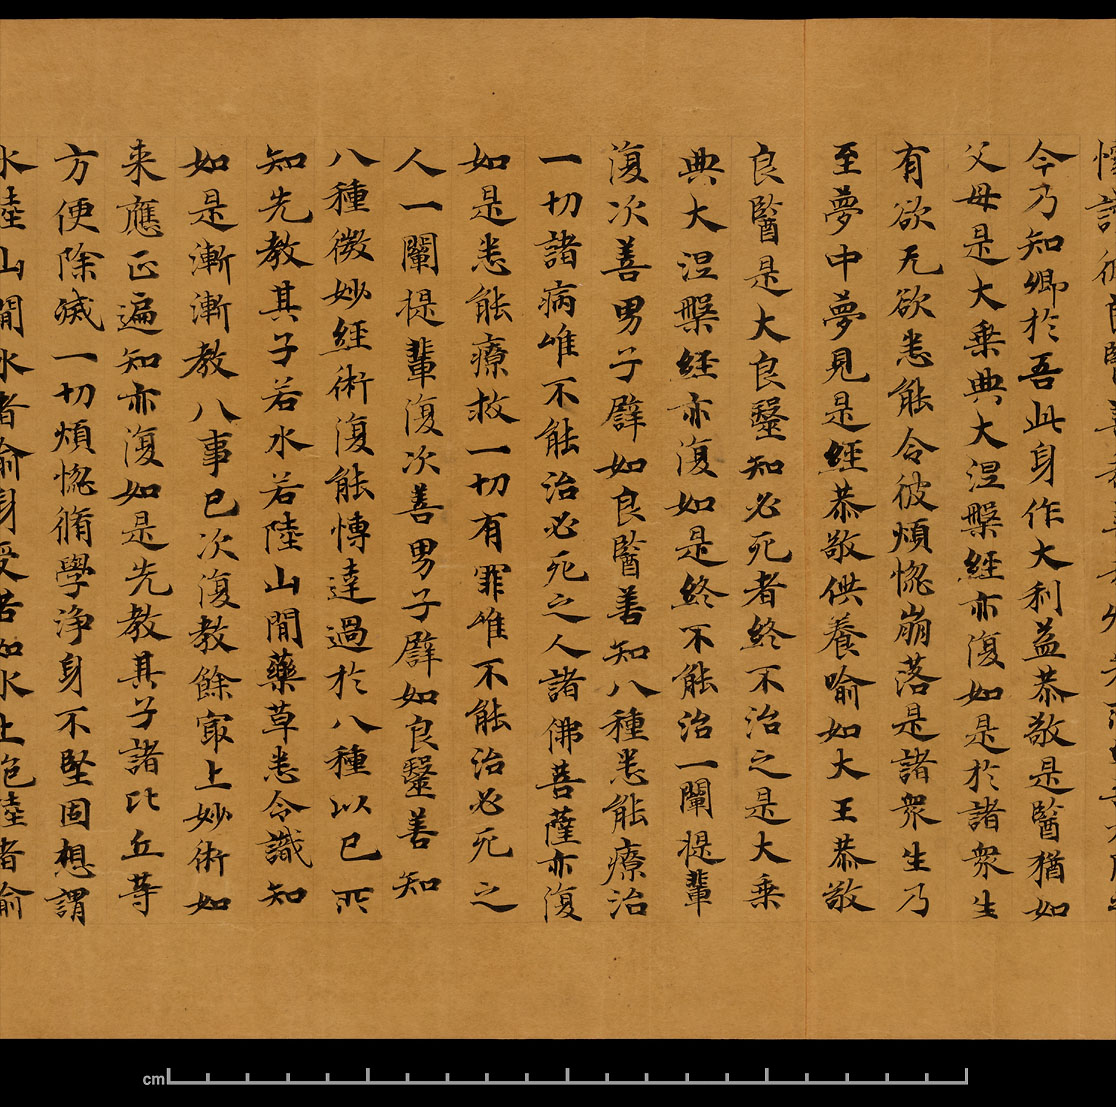 今乃知卿於吾此身作大利益恭敬是醫猶如
父母是大乗典大涅槃經亦復如是於諸衆生
有欲无欲悉能令彼煩惱崩落是諸衆生乃
至夢中夢見是經恭敬供養喻如大王恭敬
良醫是大良毉知必死者終不治之是大乗
典大涅槃經亦復如是終不能治一闡提輩
復次善男子譬如良醫善知八種悉能療治
一切諸病唯不能治必死之人諸佛菩薩亦復
如是悉能療救一切有罪唯不能治必死之
人一闡提輩復次善男子譬如良毉善知
八種微妙經術復能博達過於八種以已所
知先教其子若水若陸山閒藥草悉令識知
如是漸漸教八事已次復教餘冣上妙術如
来應正遍知亦復如是先教其子諸比丘等
方便除滅一切煩惱脩學淨身不堅固想謂
水陸山閒水者喻身受苦如水上泡陸者喻
cm